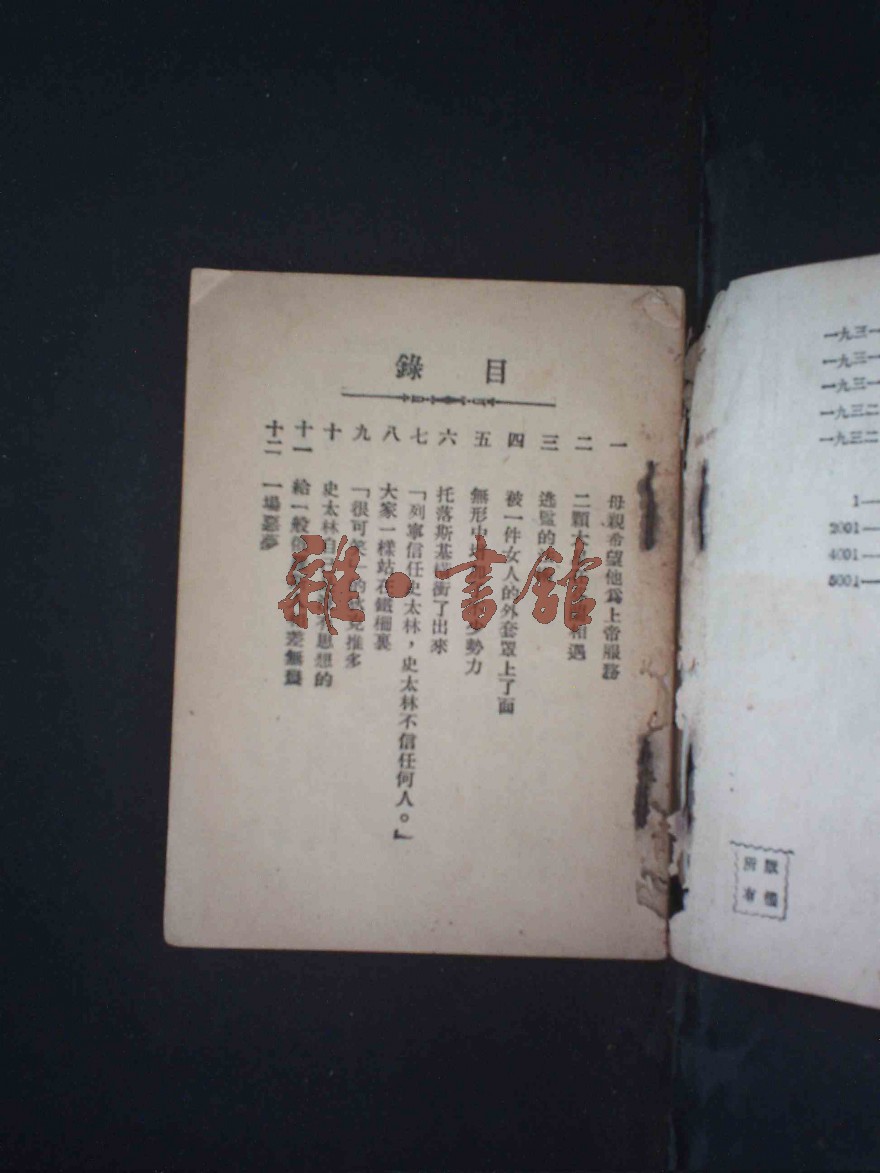 目錄
一 母親希望他爲上帝服務
二 二顆 相遇
三 逃監的
四 被一件女人的外套罩上了面
五 無形中 少勢力
六 托落斯基 衝了出來
七 「列寧信任史太林，史太林不信任何人。」
八 大家一樣站在鐵柵裏
九 「很可笑」的 推多
十 史太林自 思想的
十一 給一般 差無幾
十二 一場惡夢
雜·書館
一九三一
一九三一
一九三一
一九三二
一九三二
1—
2001—
4001—
5001—
版權所有